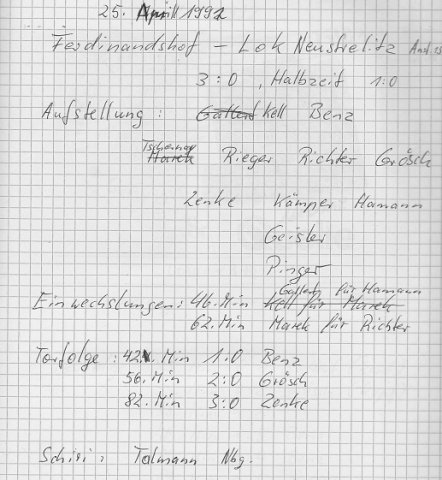 25. April 1992
Ferdinandshof – Lok Neustrelitz Anst. 15
3:0 , Halbzeit 1:0
Aufstellung : Gattert Kell Benz
Tschernay
Marek Rieger Richter Grösch
Zenke Kämper Hamann
Geisler
Pinger
Gattert für Hamann
Einwechslungen: 46. Min Kell für Marek
62. Min Marek für Richter
Torfolge : 42. Min 1:0 Benz
56. Min 2:0 Grösch
82. Min 3:0 Zenke
Schiri : Talmann Nbg.